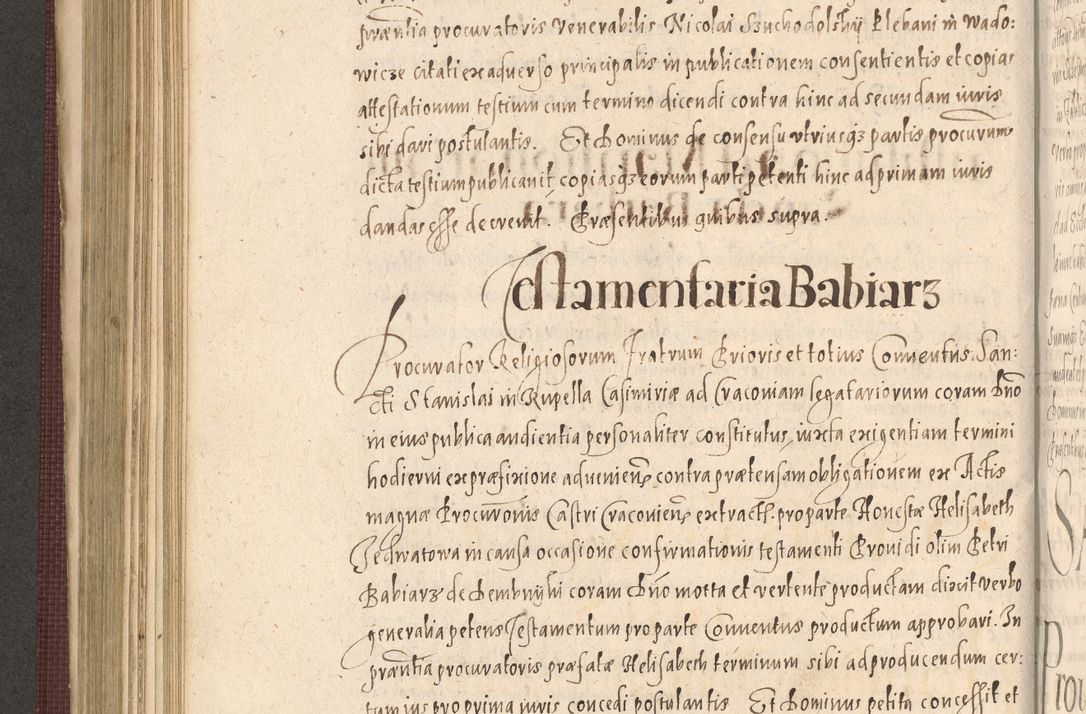 præntia procuratoris venerabilis Nicolai Szuchodolskij Plebani in Wado:
wicze citati ex adverso principalis in publicationem consentientis et copias
attestationum testium cum termino dicendi contra hinc ad secundam iuris
sibi dari postulantis. Et Dominus de consensu utriusq3 partis procurum
dicta testium publicavit copiasq3 eorum parti petenti hinc ad primam iuris
dandas esse decrevit. Præsentibus quibus supra.
Testamentaria Babiarz
Procurator Religiosorum Fratrum Prioris et totius Conventus San:
cti Stanislai in Rupella Casimiriæ ad Cracoviam legatariorum coram dno
in eius publica audientia personaliter constitutus, iuxta exigentiam termini
hodierni ex præfixione advenien. contra prætensam obligationem ex Actis
magnæ Procuronis Castri Cracovien. extract. pro parte Honestæ Helisabeth
Jedwatowa in causa occasione confirmationis testamenti Providi olim Petri
Babiarz de Dembnyki coram dno mota et vertente productam dixit verbo
generalia petens Testamentum pro parte Conventus productum approbari. In
præntia procuratoris præfatæ Helisabeth terminum sibi ad producendum cer:
tum ius pro prima iuris concedi postulantis Et Dominus petita concessit et